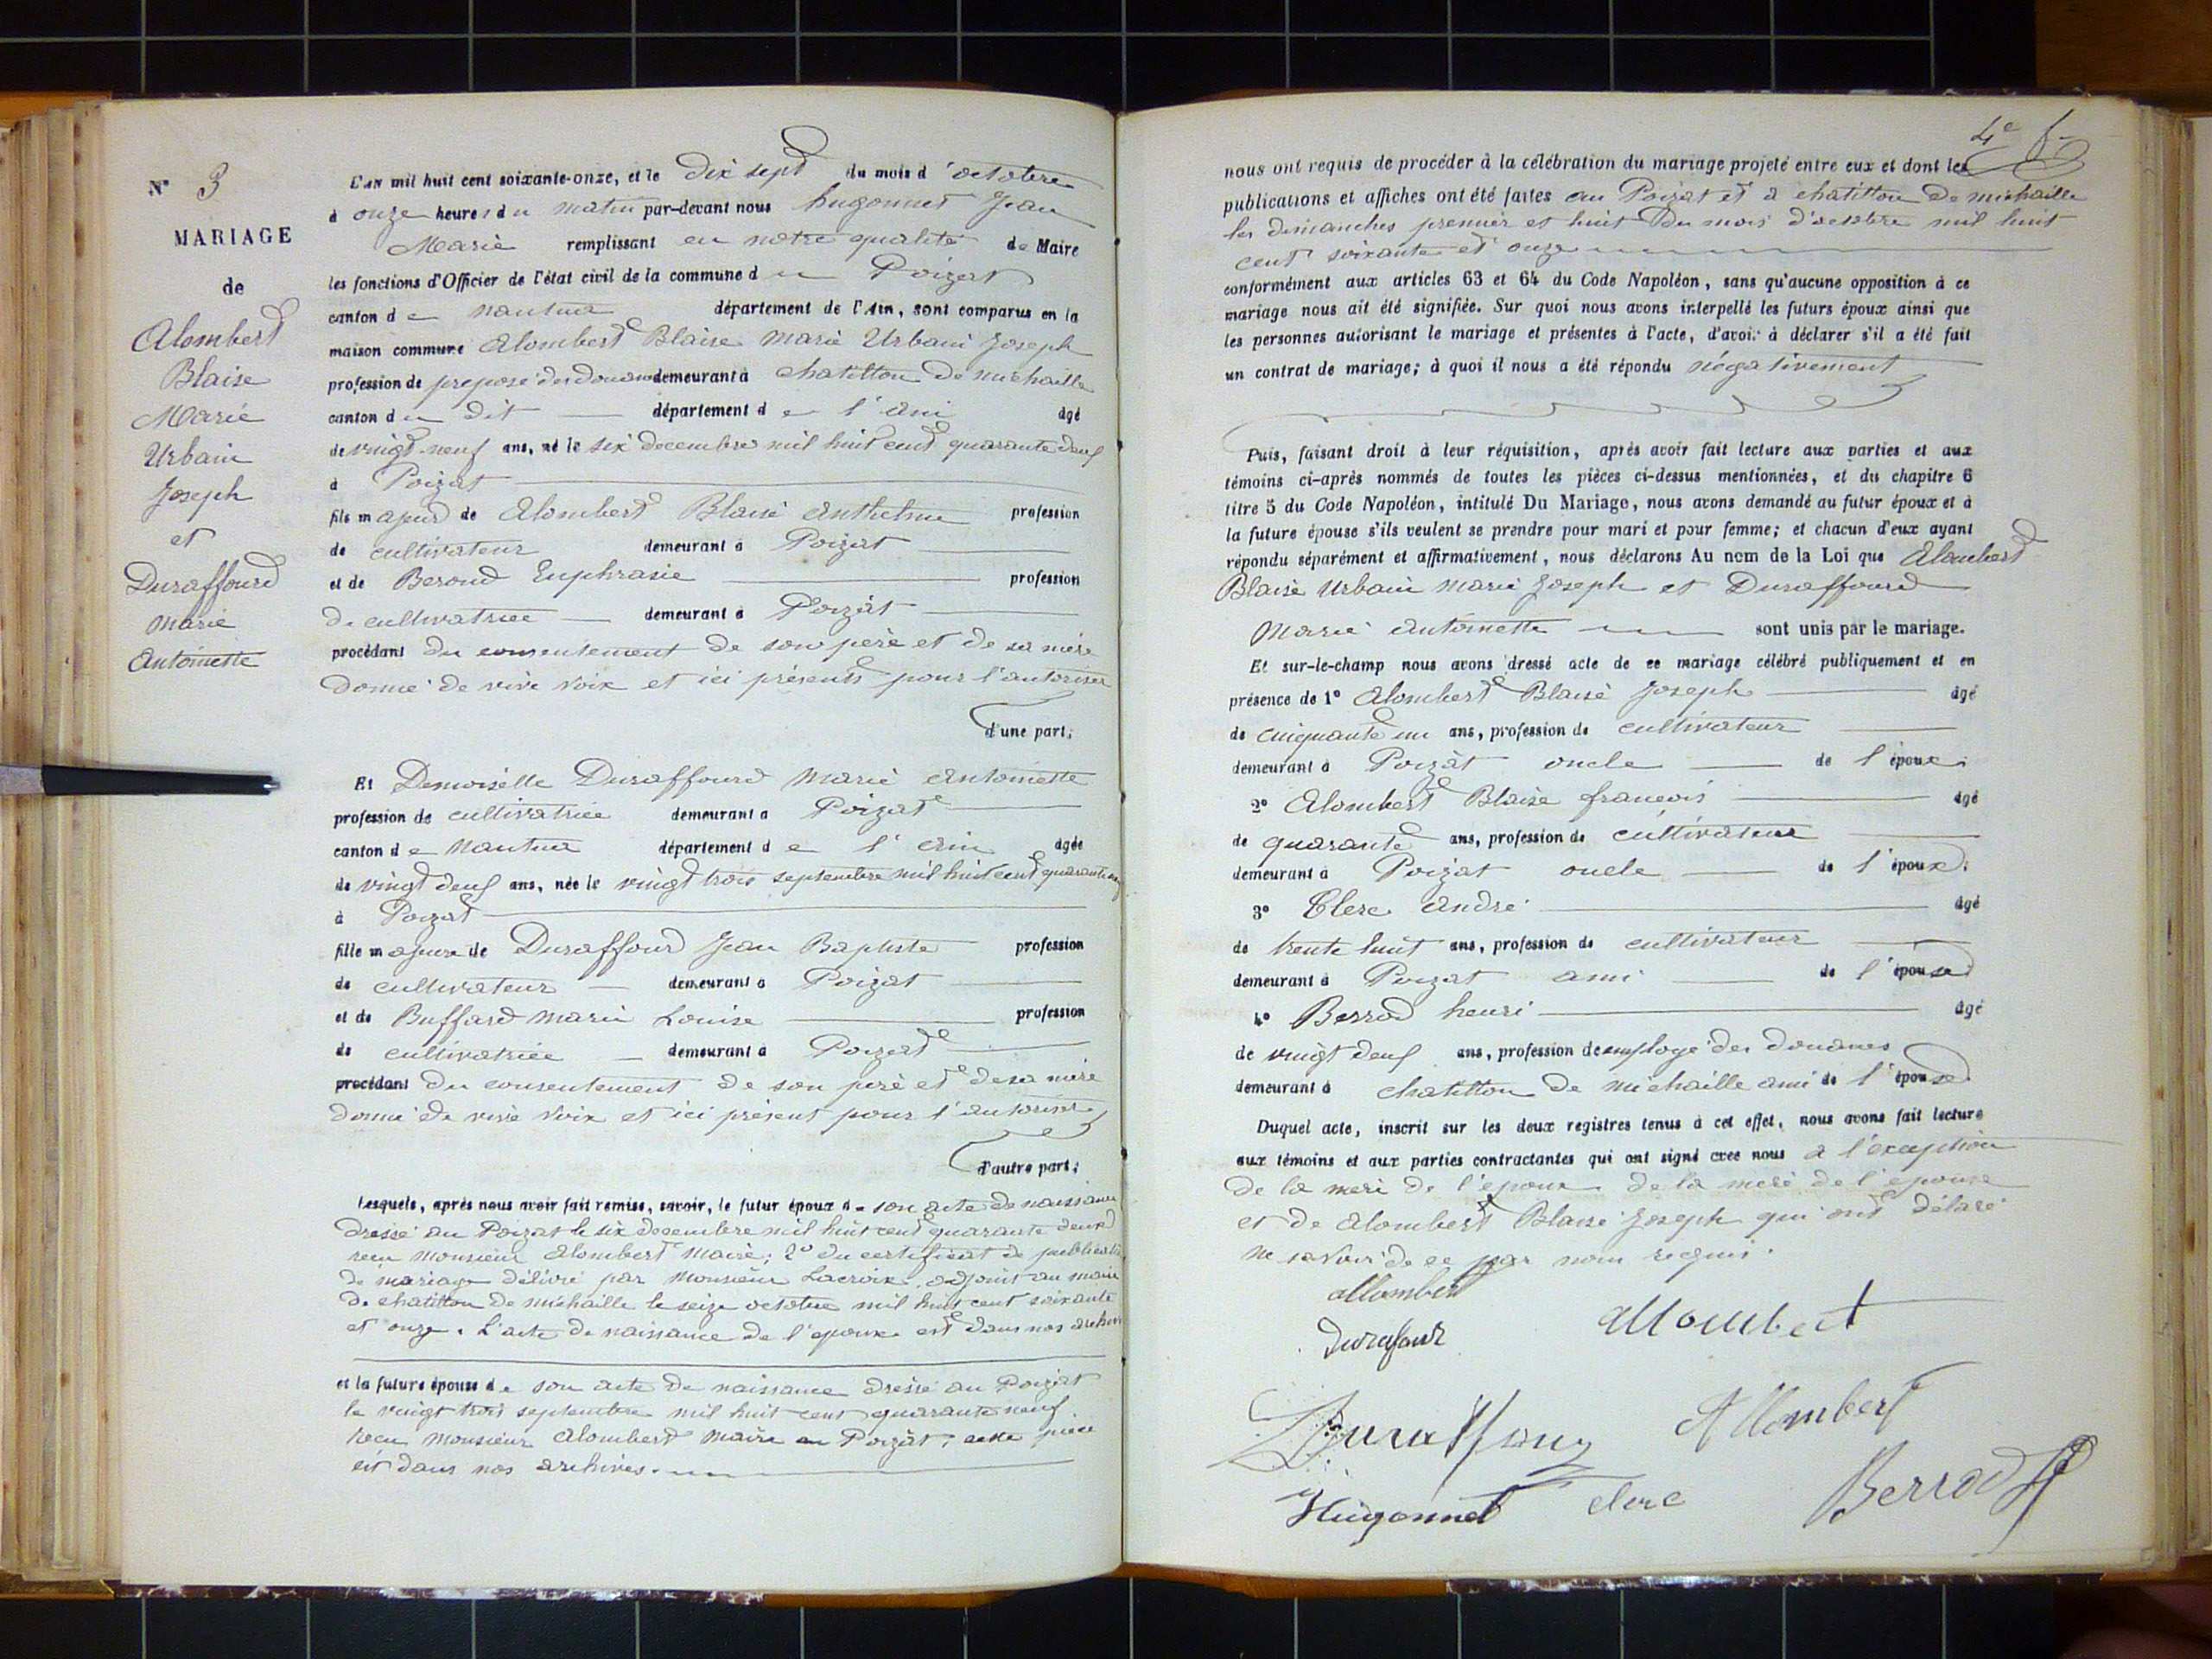 N° 3
MARIAGE
de
Alombert
Blaise
Marie
Urbain
Joseph
et
Duraffourd
Marie
Antoinette
L'an mil huit cent soixante-onze, et le Dix sept du mois d'octobre
à onze heures du matin par-devant nous hugonnet Jean
Marie remplissant en notre qualité de Maire
les fonctions d'Officier de l'état civil de la commune du Poizat
canton de nantua département de l'Ain, sont comparus en la
maison commune Alombert Blaise Marie Urbain Joseph
profession de preposé des douanes demeurant à chatillon De michaille
canton du dit département de l'ain âgé
de vingt-neuf ans, né le six decembre mil huit cent quarante deux
à Poizat
fils majeur de Alombert Blaise Anthelme profession
de cultivateur demeurant à Poizat
et de Beroud Euphrasie profession
de cultivatrice demeurant à Poizat
procédant du consentement de son père et de sa mère
donné de vive voix et ici présents pour l'autoriser
d'une part;
Et Demoiselle Duraffourd Marie Antoinette
profession de cultivatrice demeurant à Poizat
canton de Nantua département de l'ain âgée
de vingt deux ans, née le vingt trois septembre mil huit cent quarante neuf
à Poizat
fille majeure de Duraffourd Jean Baptiste profession
de cultivateur demeurant à Poizat
et de Buffard Marie Louise profession
de cultivatrice demeurant à Poizat
procédant du consentement de son père et de sa mère
donné de vive voix et ici présent pour l'autoriser
d'autre part;
Lesquels, après nous avoir fait remise, savoir, le futur époux de son acte de naissance
dressé au Poizat le six decembre mil huit cent quarante deux
reçu monsieur Alombert Maire; 2° du certificat de publication
de mariage délivré par Monsieur Lacroix adjoint au maire
de chatillon De michaille le seize octobre mil huit cent soixante
et onze. L'acte de naissance de l'epoux est dans nos archives
et la future épouse de son acte de naissance dressé au Poizat
le vingt trois septembre mil huit cent quarante neuf
reçu Monsieur Alombert Maire au Poizat; cette pièce
est dans nos archives.
4e
nous ont requis de procéder à la célébration du mariage projeté entre eux et dont les
publications et affiches ont été faites au Poizat et à chatillon De michaille
les dimanches premier et huit Du mois d'octobre mil huit
cent soixante et onze
conformément aux articles 63 et 64 du Code Napoléon, sans qu'aucune opposition à ce
mariage nous ait été signifiée. Sur quoi nous avons interpellé les futurs époux ainsi que
les personnes autorisant le mariage et présentes à l'acte, d'avoir à déclarer s'il a été fait
un contrat de mariage; à quoi il nous a été répondu négativement
Puis, faisant droit à leur réquisition, après avoir fait lecture aux parties et aux
témoins ci-après nommés de toutes les pièces ci-dessus mentionnées, et du chapitre 6
titre 5 du Code Napoléon, intitulé Du Mariage, nous avons demandé au futur époux et à
la future épouse s'ils veulent se prendre pour mari et pour femme; et chacun d'eux ayant
répondu séparément et affirmativement, nous déclarons Au nom de la Loi que Alombert
Blaise Urbain Marie Joseph et Duraffourd
Marie Antoinette sont unis par le mariage.
Et sur-le-champ nous avons dressé acte de ce mariage célébré publiquement et en
présence de 1° Alombert Blaise Joseph âgé
de cinquante un ans, profession de cultivateur
demeurant à Poizat oncle de l'époux;
2° Alombert Blaise françois âgé
de quarante ans, profession de cultivateur
demeurant à Poizat oncle de l'époux;
3° Clerc André âgé
de trente huit ans, profession de cultivateur
demeurant à Poizat ami de l'épouse
4° Berrod henri âgé
de vingt deux ans, profession de employé des douanes
demeurant à chatillon De michaille ami de l'épouse
Duquel acte, inscrit sur les deux registres tenus à cet effet, nous avons fait lecture
aux témoins et aux parties contractantes qui ont signé avec nous à l'exception
de la mere de l'epoux de la mere de l'epouse
et de Alombert Blaise Joseph qui ont délaré
ne savoir de ce par nous requis.
allombert
Durafour
allombert
Duraffour
Allombert
Hugonnet
clerc
Berrod